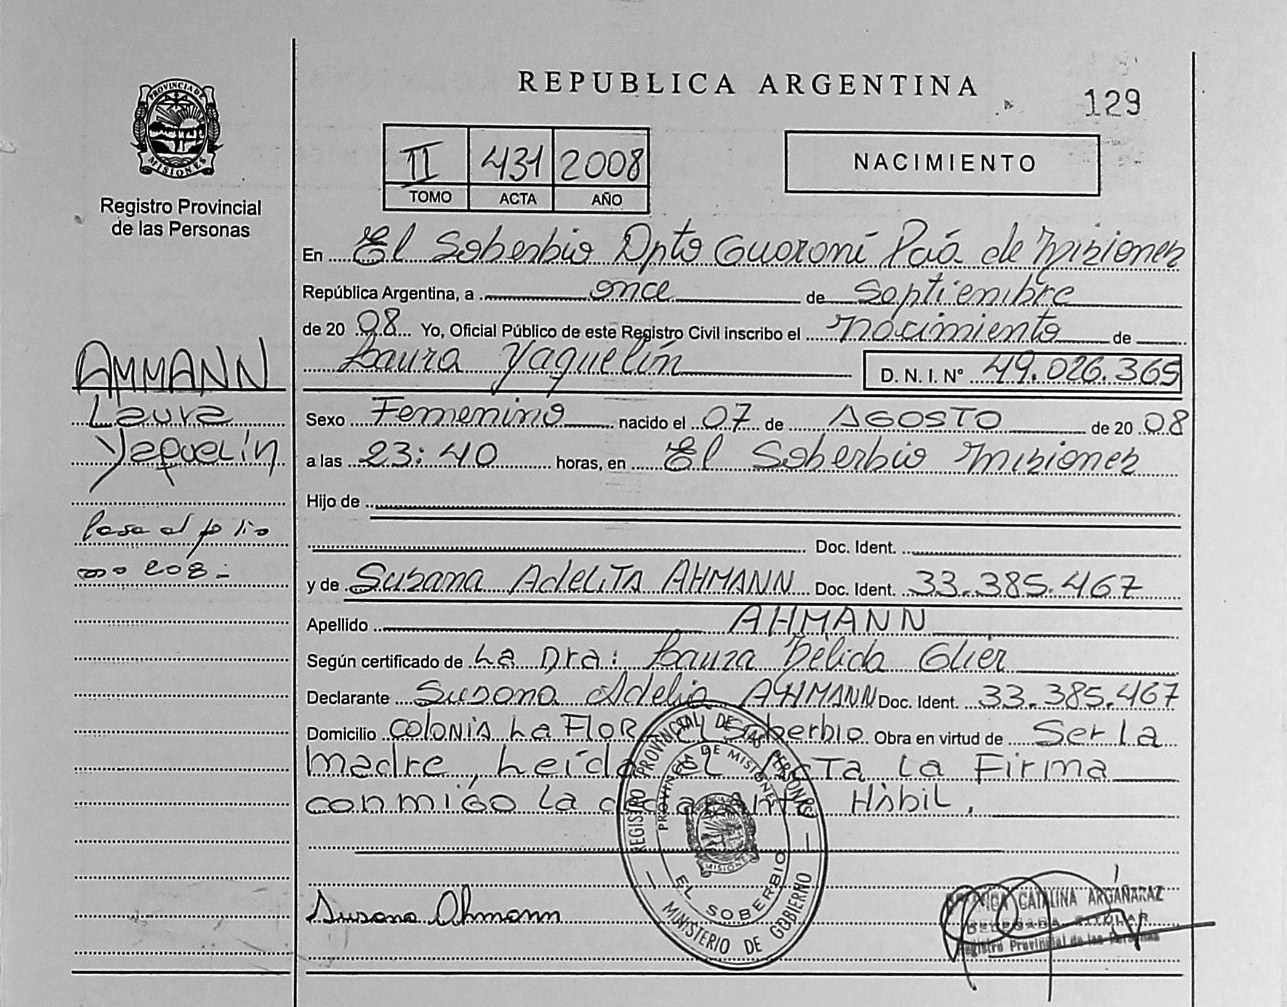 REPUBLICA ARGENTINA
129
PROVINCIA DE
MISIONES
Registro Provincial
de las Personas
II 431 2008
TOMO ACTA AÑO
NACIMIENTO
En El Soberbio Dpto Guaraní Pcia de Misiones
República Argentina, a once de Septiembre
de 20 08 Yo, Oficial Público de este Registro Civil inscribo el Nacimiento de
Laura Yaquelín D. N. I. Nº 49.026.365
Sexo Femenino nacido el 07 de AGOSTO de 20 08
a las 23:40 horas, en El Soberbio Misiones
Hijo de
Doc. Ident.
y de Susana Adelita AHMANN Doc. Ident. 33.385.467
Apellido AHMANN
Según certificado de La Dra: Laura Nélida Glier
Declarante Susana Adelia AHMANN Doc. Ident. 33.385.467
Domicilio Colonia La Flor El Soberbio Obra en virtud de Ser La
madre, Leída el Acta La Firma
conmigo La declarante Hábil.
AMMANN
Laura
Yaquelín
Pasa al folio
208-
Susana Ahmann
REGISTRO PROVINCIAL DE LAS PERSONAS
PROVINCIA DE MISIONES
MISIONES
EL SOBERBIO
MINISTERIO DE GOBIERNO
CATALINA ARGAÑARAZ
DELEGADA TITULAR
Registro Provincial de las Personas